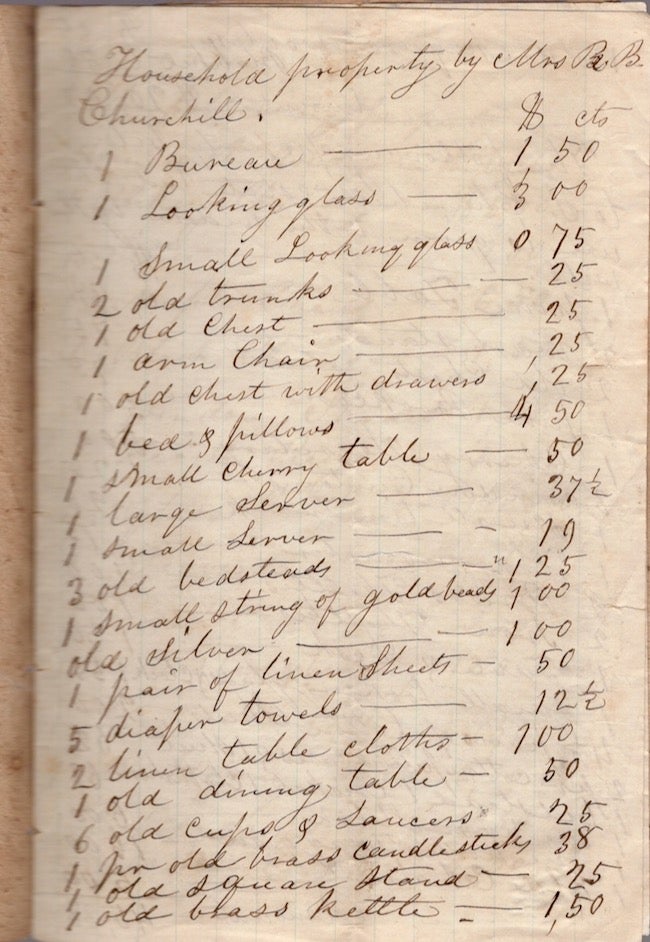 Household property by Mrs B B
Churchill.
$ cts
1 Bureau 1 50
1 Looking glass 3 00
1 Small Looking glass 0 75
2 old trunks 25
1 old Chest 25
1 arm Chair ,25
1 old chest with drawers ,25
1 bed & pillows 4 50
1 small cherry table 50
1 large Server 37½
1 small Server 19
3 old bedsteads " 1 25
1 small string of gold beads 1 00
old Silver 1 00
1 pair of linen Sheets 50
5 diaper towels 12½
2 linen table cloths 1 00
1 old dining table 50
6 old cups & Saucers 25
1 pr old brass candlesticks 38
1 old square stand 25
1 old brass kettle 1,50